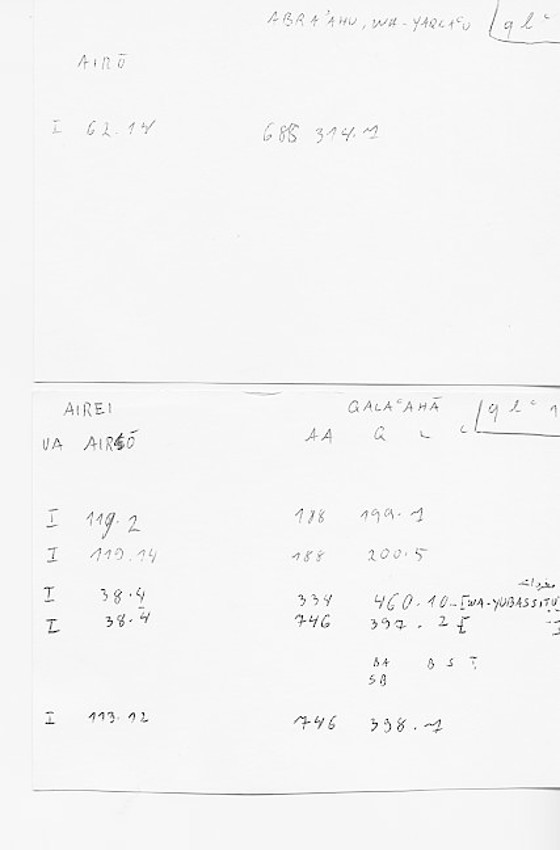 ABRAʾAHU, WA-YAQLAᶜU q l ᶜ
AIRŌ
I 62.14 688 314.1
AIREI QALAᶜAHĀ q l ᶜ 1
VA AIRŌ AA Q L ᶜ
I 119.2 188 199.1
I 119.14 188 200.5
مفردات
I 38.4 334 460.10 [WA-YUBASSITU
I 38.4 746 397.2 [
BA B S Ṭ
SB
I 113.12 746 398.1